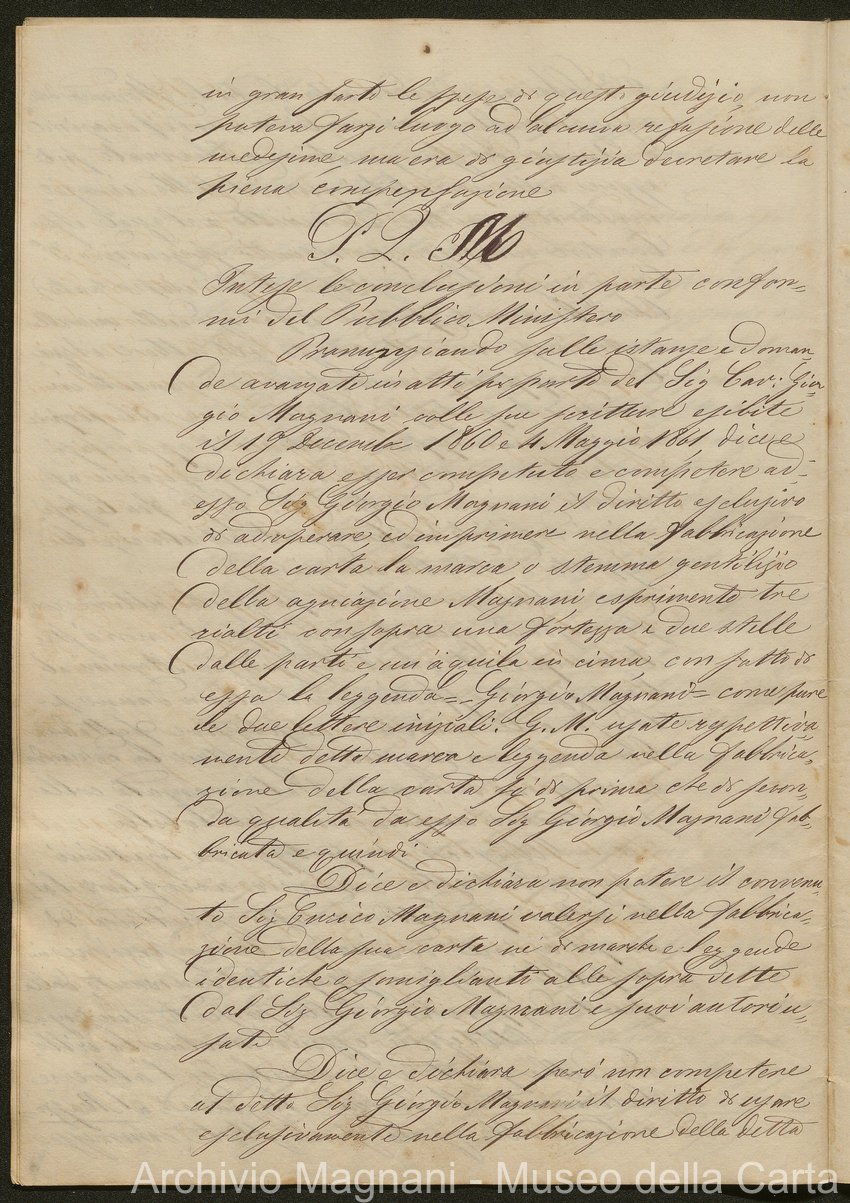 in gran parte le spese di questo giudizio, non
poteva farsi luogo ad alcuna refusione delle
medesime, ma era di giustizia decretare la
piena compensazione
P. Q. M
Intese le conclusioni in parte confor=
mi del Pubblico Ministero
Pronunziando sulle istanze e doman=
de avanzate in atti per parte del Sig Cav: Gior=
gio Magnani colle sue scritture esibite
il 19 Decembre 1860 e 4 Maggio 1861, dice e
dichiara esser competuto e competere ad
esso Sig Giorgio Magnani il diritto esclusivo
di adoperare, ed imprimere nella fabbricazione
della carta la marca o stemma gentilizio
della agnazione Magnani esprimente tre
rialti con sopra una fortezza e due stelle
dalle parti e un'aquila in cima, con sotto di
essa la leggenda = Giorgio Magnani = come pure
le due lettere iniziali: G. M. usate respettiva
mente detta marca e leggenda nella fabbrica=
zione della carta sì di prima che di secon=
da qualità da esso Sig Giorgio Magnani fab=
bricata e quindi
Dice e dichiara non potere il convenu=
to Sig Enrico Magnani valersi nella fabbrica=
zione della sua carta nè di marche e leggende
identiche o somiglianti alle sopra dette
dal Sig Giorgio Magnani e suoi autori u=
sate
Dice e dichiara però non competere
al detto Sig Giorgio Magnani il diritto di usare
esclusivamente nella fabbricazione della detta
Archivio Magnani - Museo della Carta